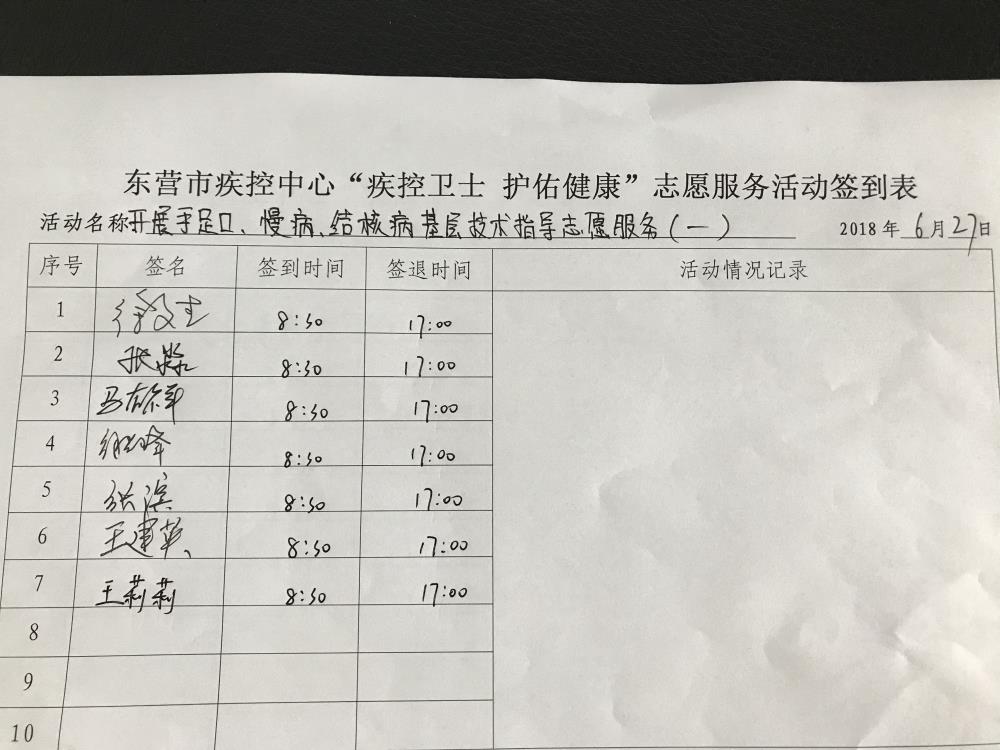 东营市疾控中心“疾控卫士 护佑健康”志愿服务活动签到表
活动名称开展手足口、慢病、结核病基层技术指导志愿服务(一) 2018年6月27日
序号 签名 签到时间 签退时间 活动情况记录
1 8:30 17:00
2 张 8:30 17:00
3 马 8:30 17:00
4 8:30 17:00
5 滨 8:30 17:00
6 王建英 8:30 17:00
7 王莉莉 8:30 17:00
8
9
10